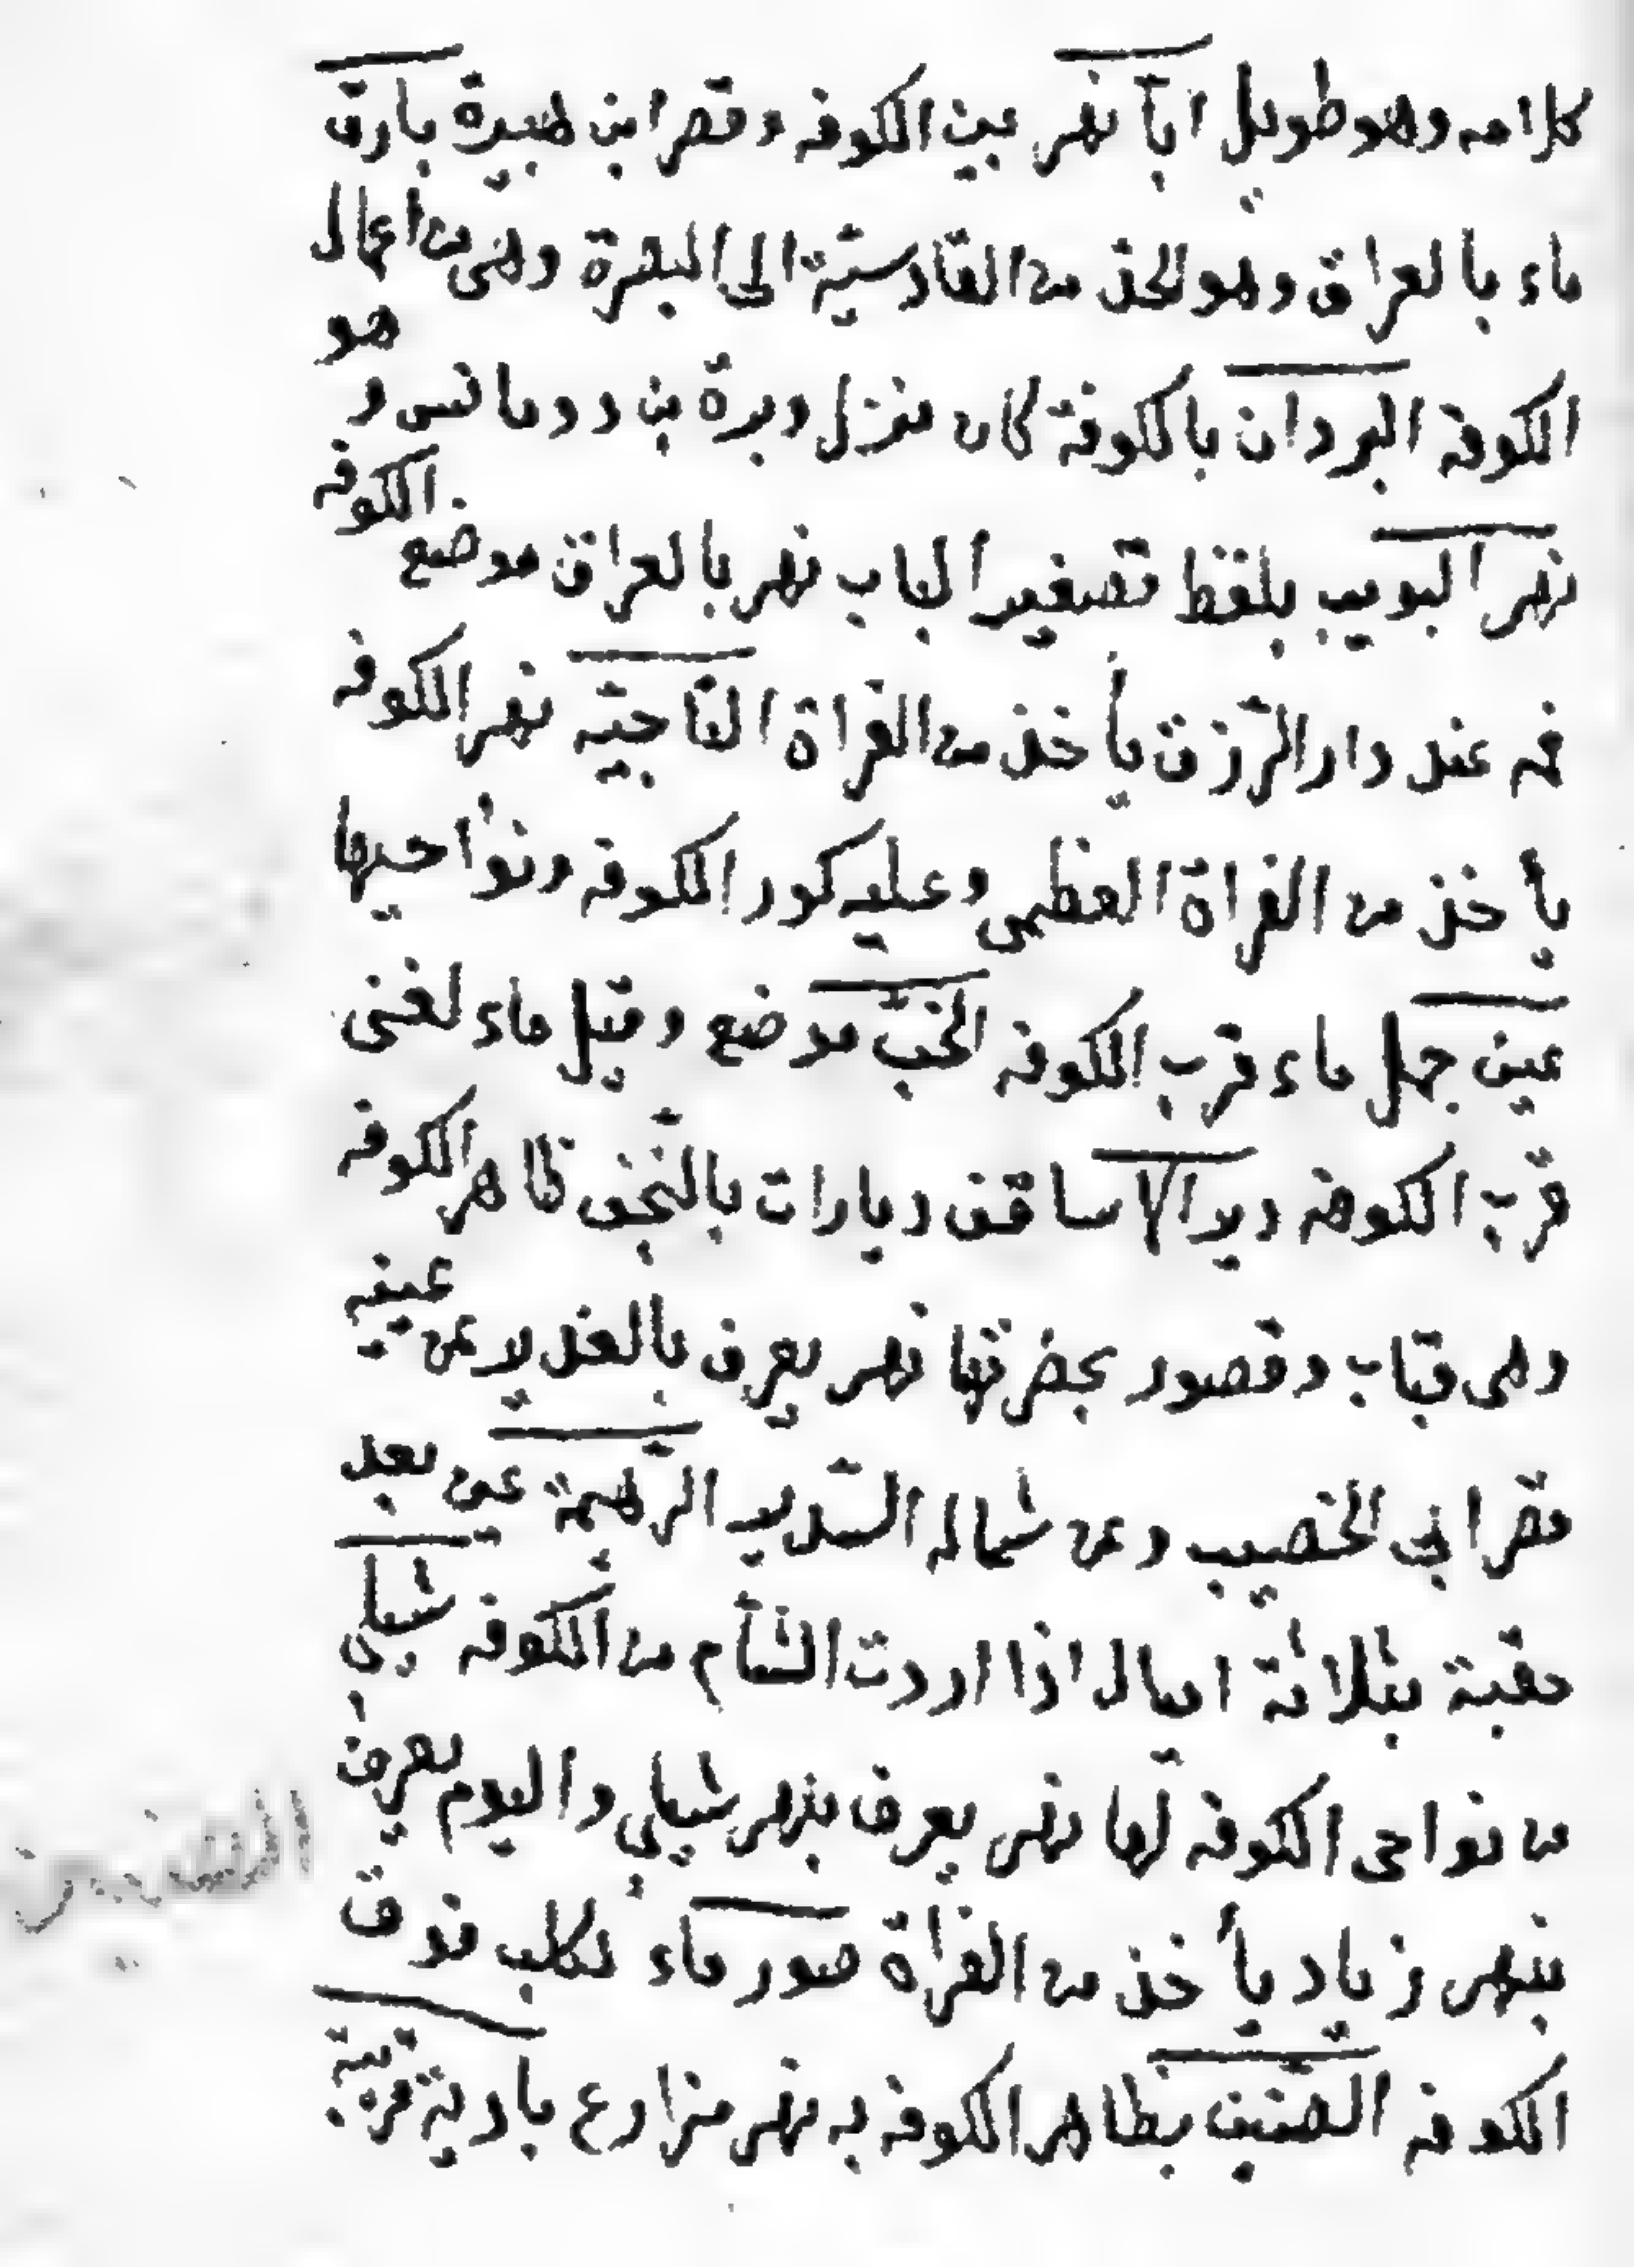 كلامه وهو طويل اباّ نهر بين الكوفه وقصر ابن هبيرة بارق
ماء بالعراق وهو الحد من القادسيّة الى البصرة وهى من اعمال
الكوفه البردان بالكوفة كان منزل وبرة بن رومانس وهو
نهر البويب بلفظ تصغير الباب نهر بالعراق موضع الكوفه
فمه عند دار الرّزق يأخذ من الفراة التّاجيّه نهر الكوفه
يأخذ من الفراة العظمى وعليه كور الكوفه ونواحيها
عين جمل ماء قرب الكوفه الخبّ موضع وقيل ماء لغنى
قرب الكوفه دير الاساقف ديارات بالنّجف ظاهر الكوفه
وهى قباب وقصور بحضرتها نهر يعرف بالغدير عن يمينه
قصر ابي الخصيب وعن شماله السّدير الرّهيمة عين بعد
خفية بثلاثة اميال اذا اردت الشأم من الكوفه شيلى
من نواحى الكوفه لها نهر يعرف بنهر شيلي واليوم يعرف
بنهر زياد يأخذ من الفراة صور ماء لكلب فوق
الكوفه الصّنين بظاهر الكوفه به نهر مزارع بادية قريبة